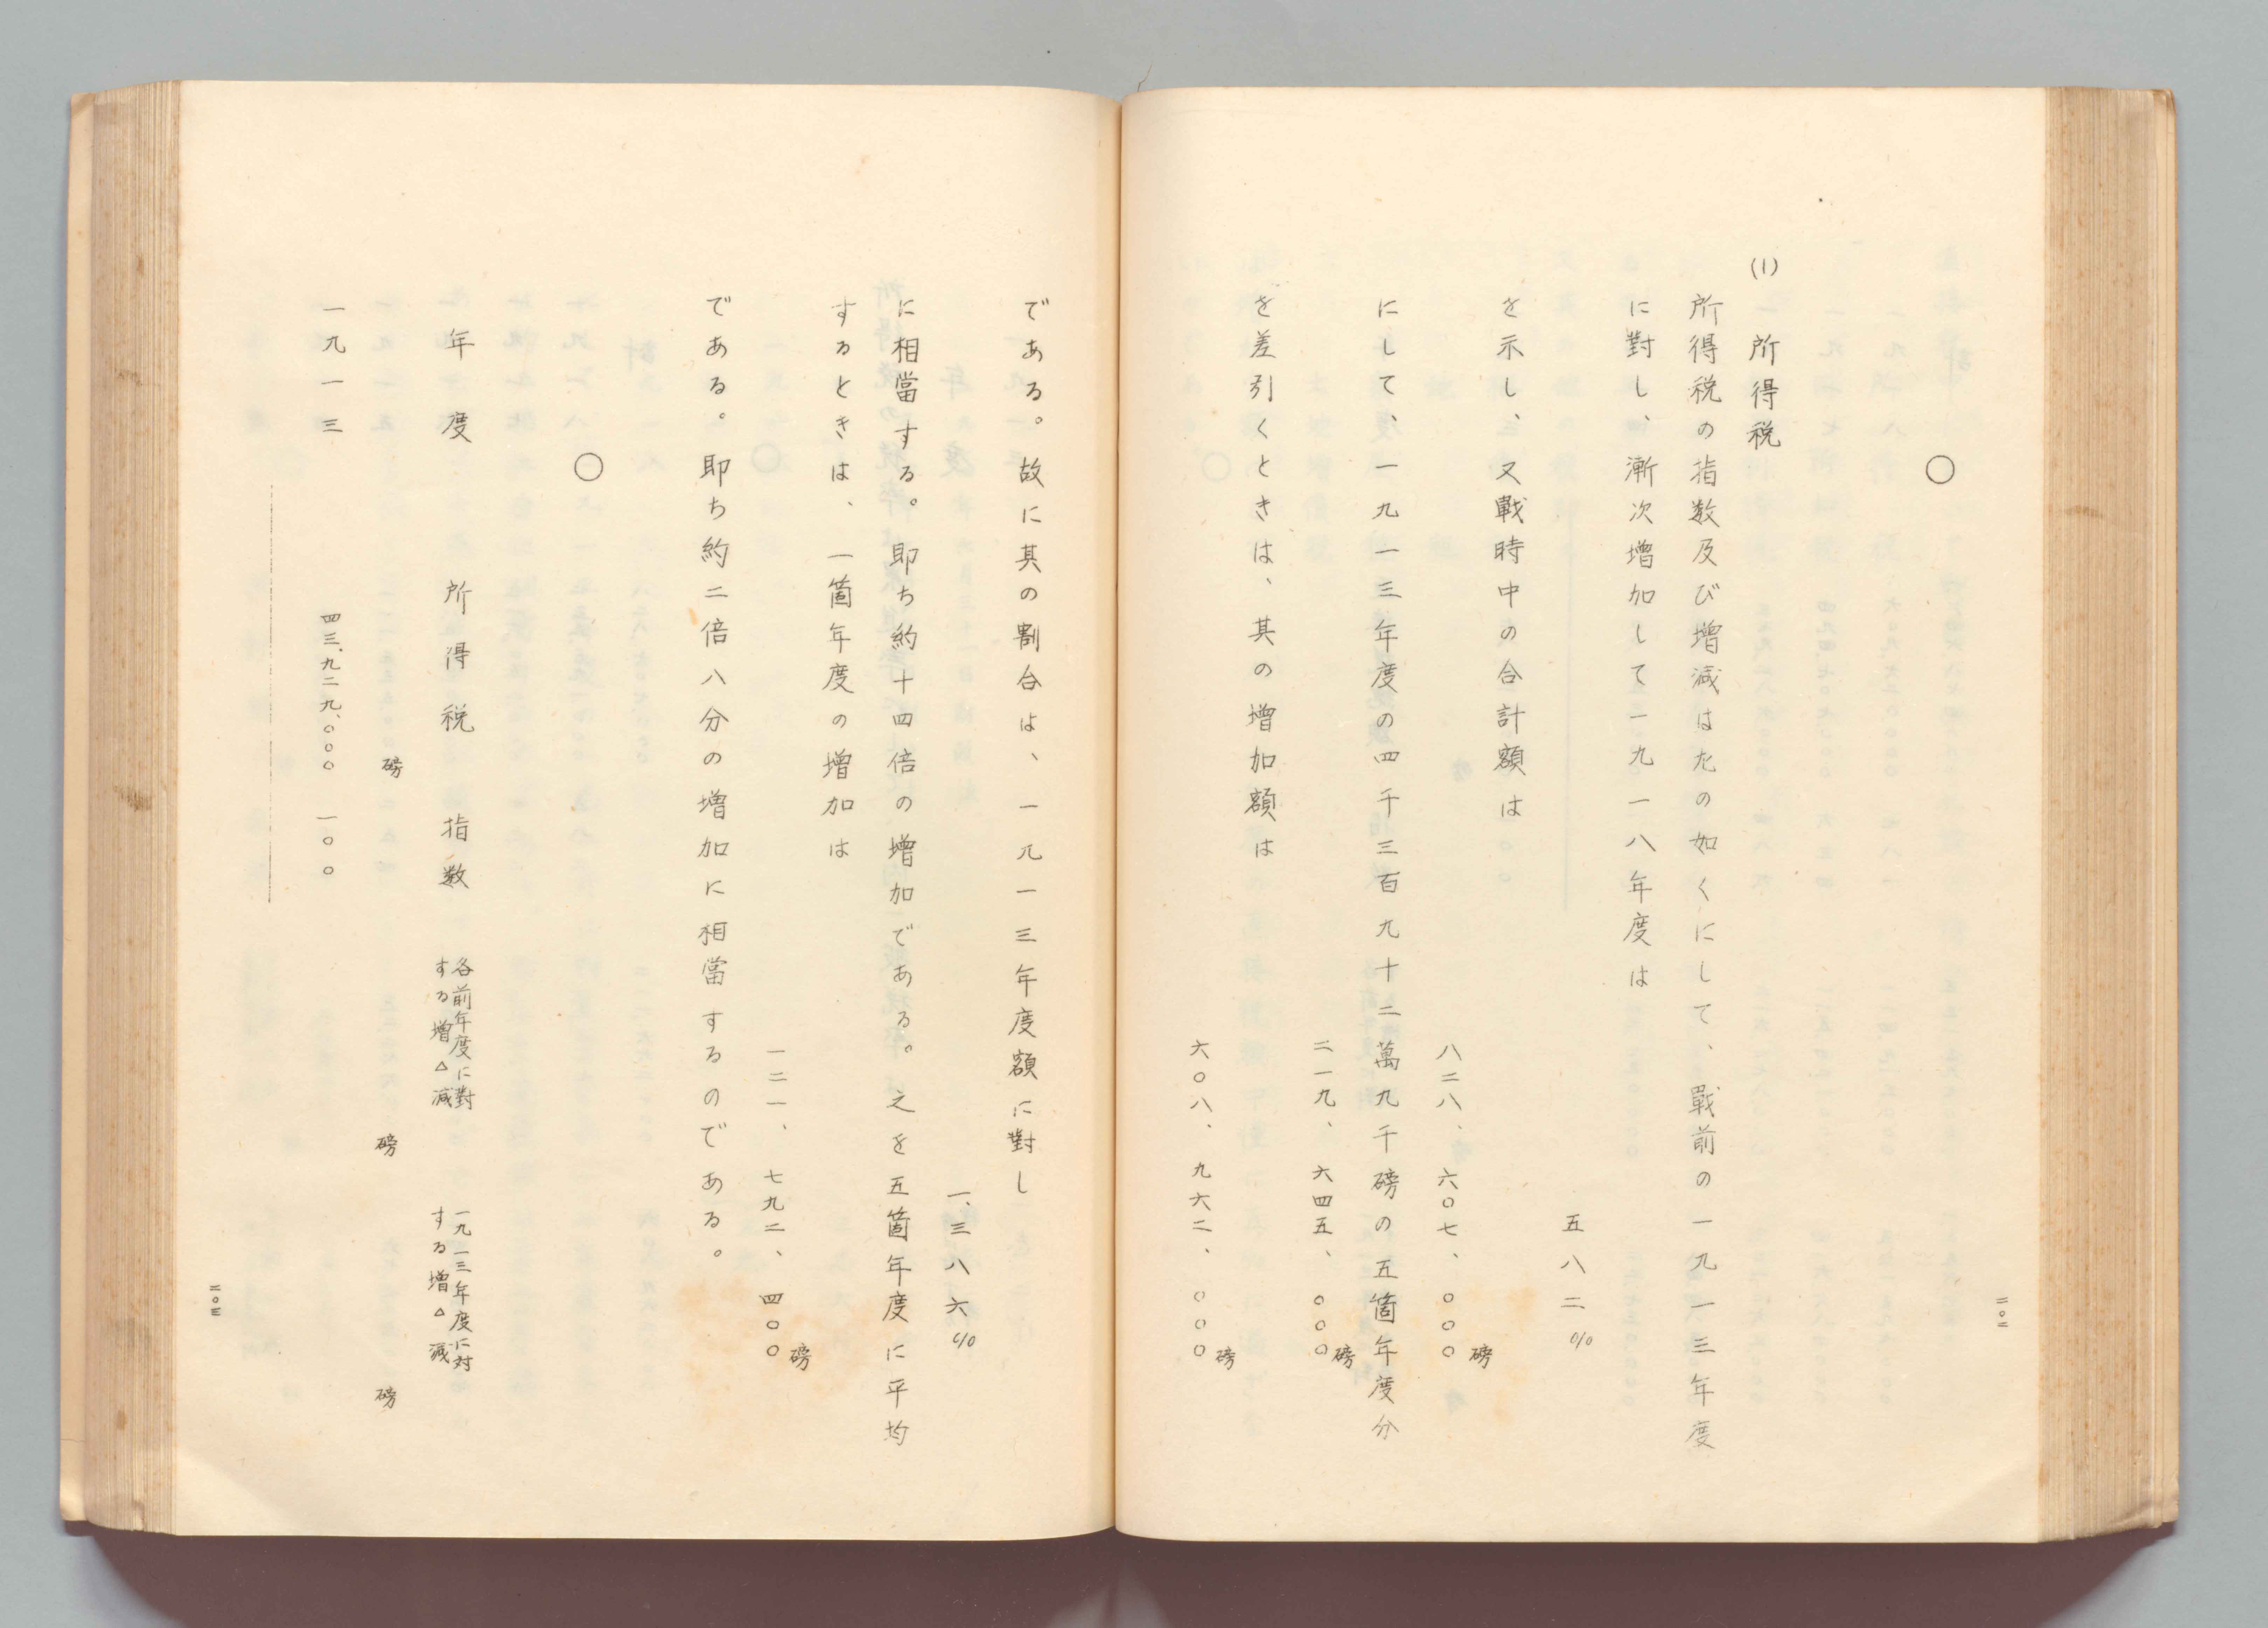 ○
(1) 所得税
所得税の指数及び増減はたの如くにして、戰前の一九一三年度
に對し、漸次増加して一九一八年度は
五八二%
を示し、又戰時中の合計額は
磅
八二八、六〇七、〇〇〇
にして、一九一三年度の四千三百九十二萬九千磅の五箇年度分
磅
二一九、六四五、〇〇〇
を差引くときは、其の増加額は
磅
六〇八、九六二、〇〇〇
二〇二
である。故に其の割合は、一九一三年度額に對し
一、三八六%
に相當する。即ち約十四倍の増加である。之を五箇年度に平均
するときは、一箇年度の増加は
磅
一二一、七九二、四〇〇
である。即ち約二倍八分の増加に相當するのである。
○
年度 所得税 指数 各前年度に對する増△減 一九一三年度に対する増△減
磅 磅 磅
一九一三 四三、九二九、〇〇〇 一〇〇
二〇三